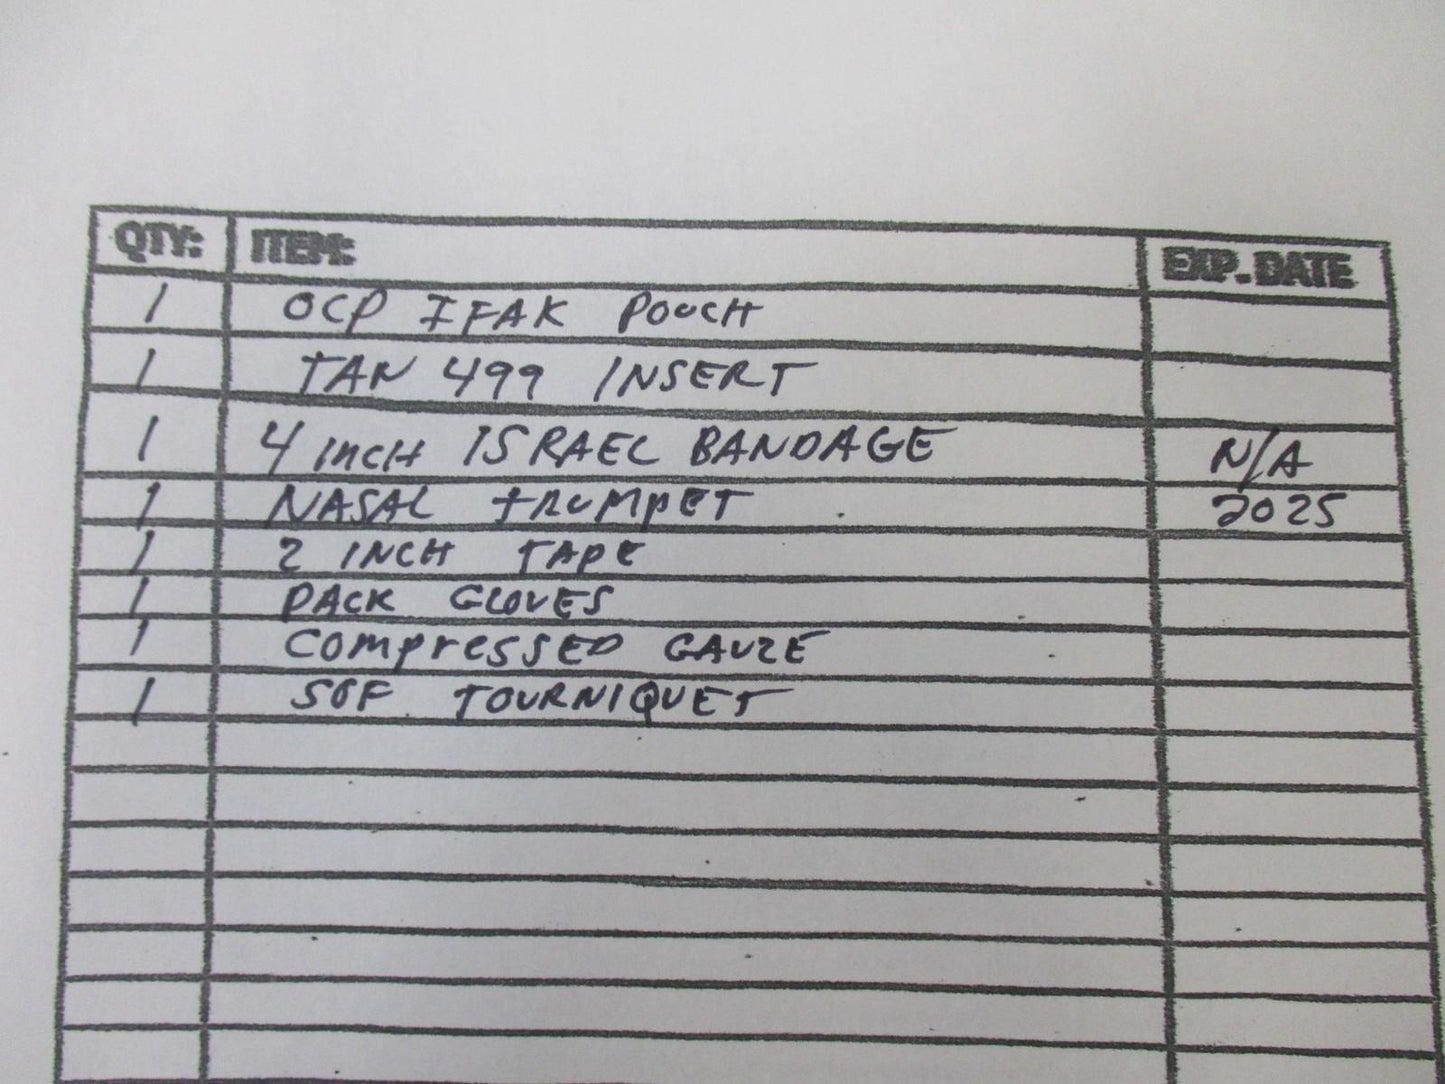 QTY: ITEM: EXP. DATE
1 OCP IFAK POUCH
1 TAN 499 INSERT
1 4 INCH ISRAEL BANDAGE N/A
1 NASAL TRUMPET 2025
1 2 INCH TAPE
1 PACK GLOVES
1 COMPRESSED GAUZE
1 SOF TOURNIQUET